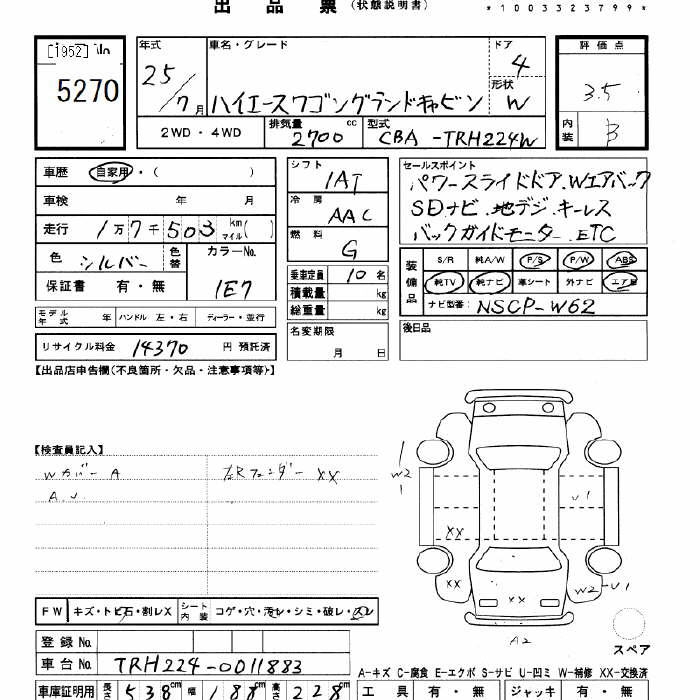 出品票 (状態説明書) *1003323799*
[1952]
5270
年式 25/7月
車名・グレード ハイエースワゴングランドキャビン
ドア 4
形状 W
評価点 3.5
内装 B
2WD・4WD 排気量 2700 cc 型式 CBA-TRH224W
車歴 自家用・( )
車検 年 月
走行 1万7千503 km マイル( )
色 シルバー 色替 カラーNo. 1E7
保証書 有・無
モデル年式 年 ハンドル 左・右 ディーラー・並行
リサイクル料金 14370 円 預託済
シフト IAT
冷房 AAC
燃料 G
乗車定員 10 名
積載量 kg
総重量 kg
名変期限 月 日
セールスポイント
パワースライドドア.Wエアバック
SDナビ.地デジ.キーレス
バックガイドモニター.ETC
装備品 S/R 純A/W P/S P/W ABS
純TV 純ナビ 革シート 外ナビ エアB
ナビ型番: NSCP-W62
後日品
【出品店申告欄(不良箇所・欠品・注意事項等)】
【検査員記入】
Wカバー A
XX
W2
U1
XX
XX
XX
W2-U1
A2
スペア
FW キズ・トビ石・割レX シート内装 コゲ・穴・汚レ・シミ・破レ・スレ
登録No.
車台No. TRH224-0011883
A-キズ C-腐食 E-エクボ S-サビ U-凹ミ W-補修 XX-交換済
車庫証明用 長さ 538cm 幅 188cm 高さ 228cm
工具 有・無 ジャッキ 有・無